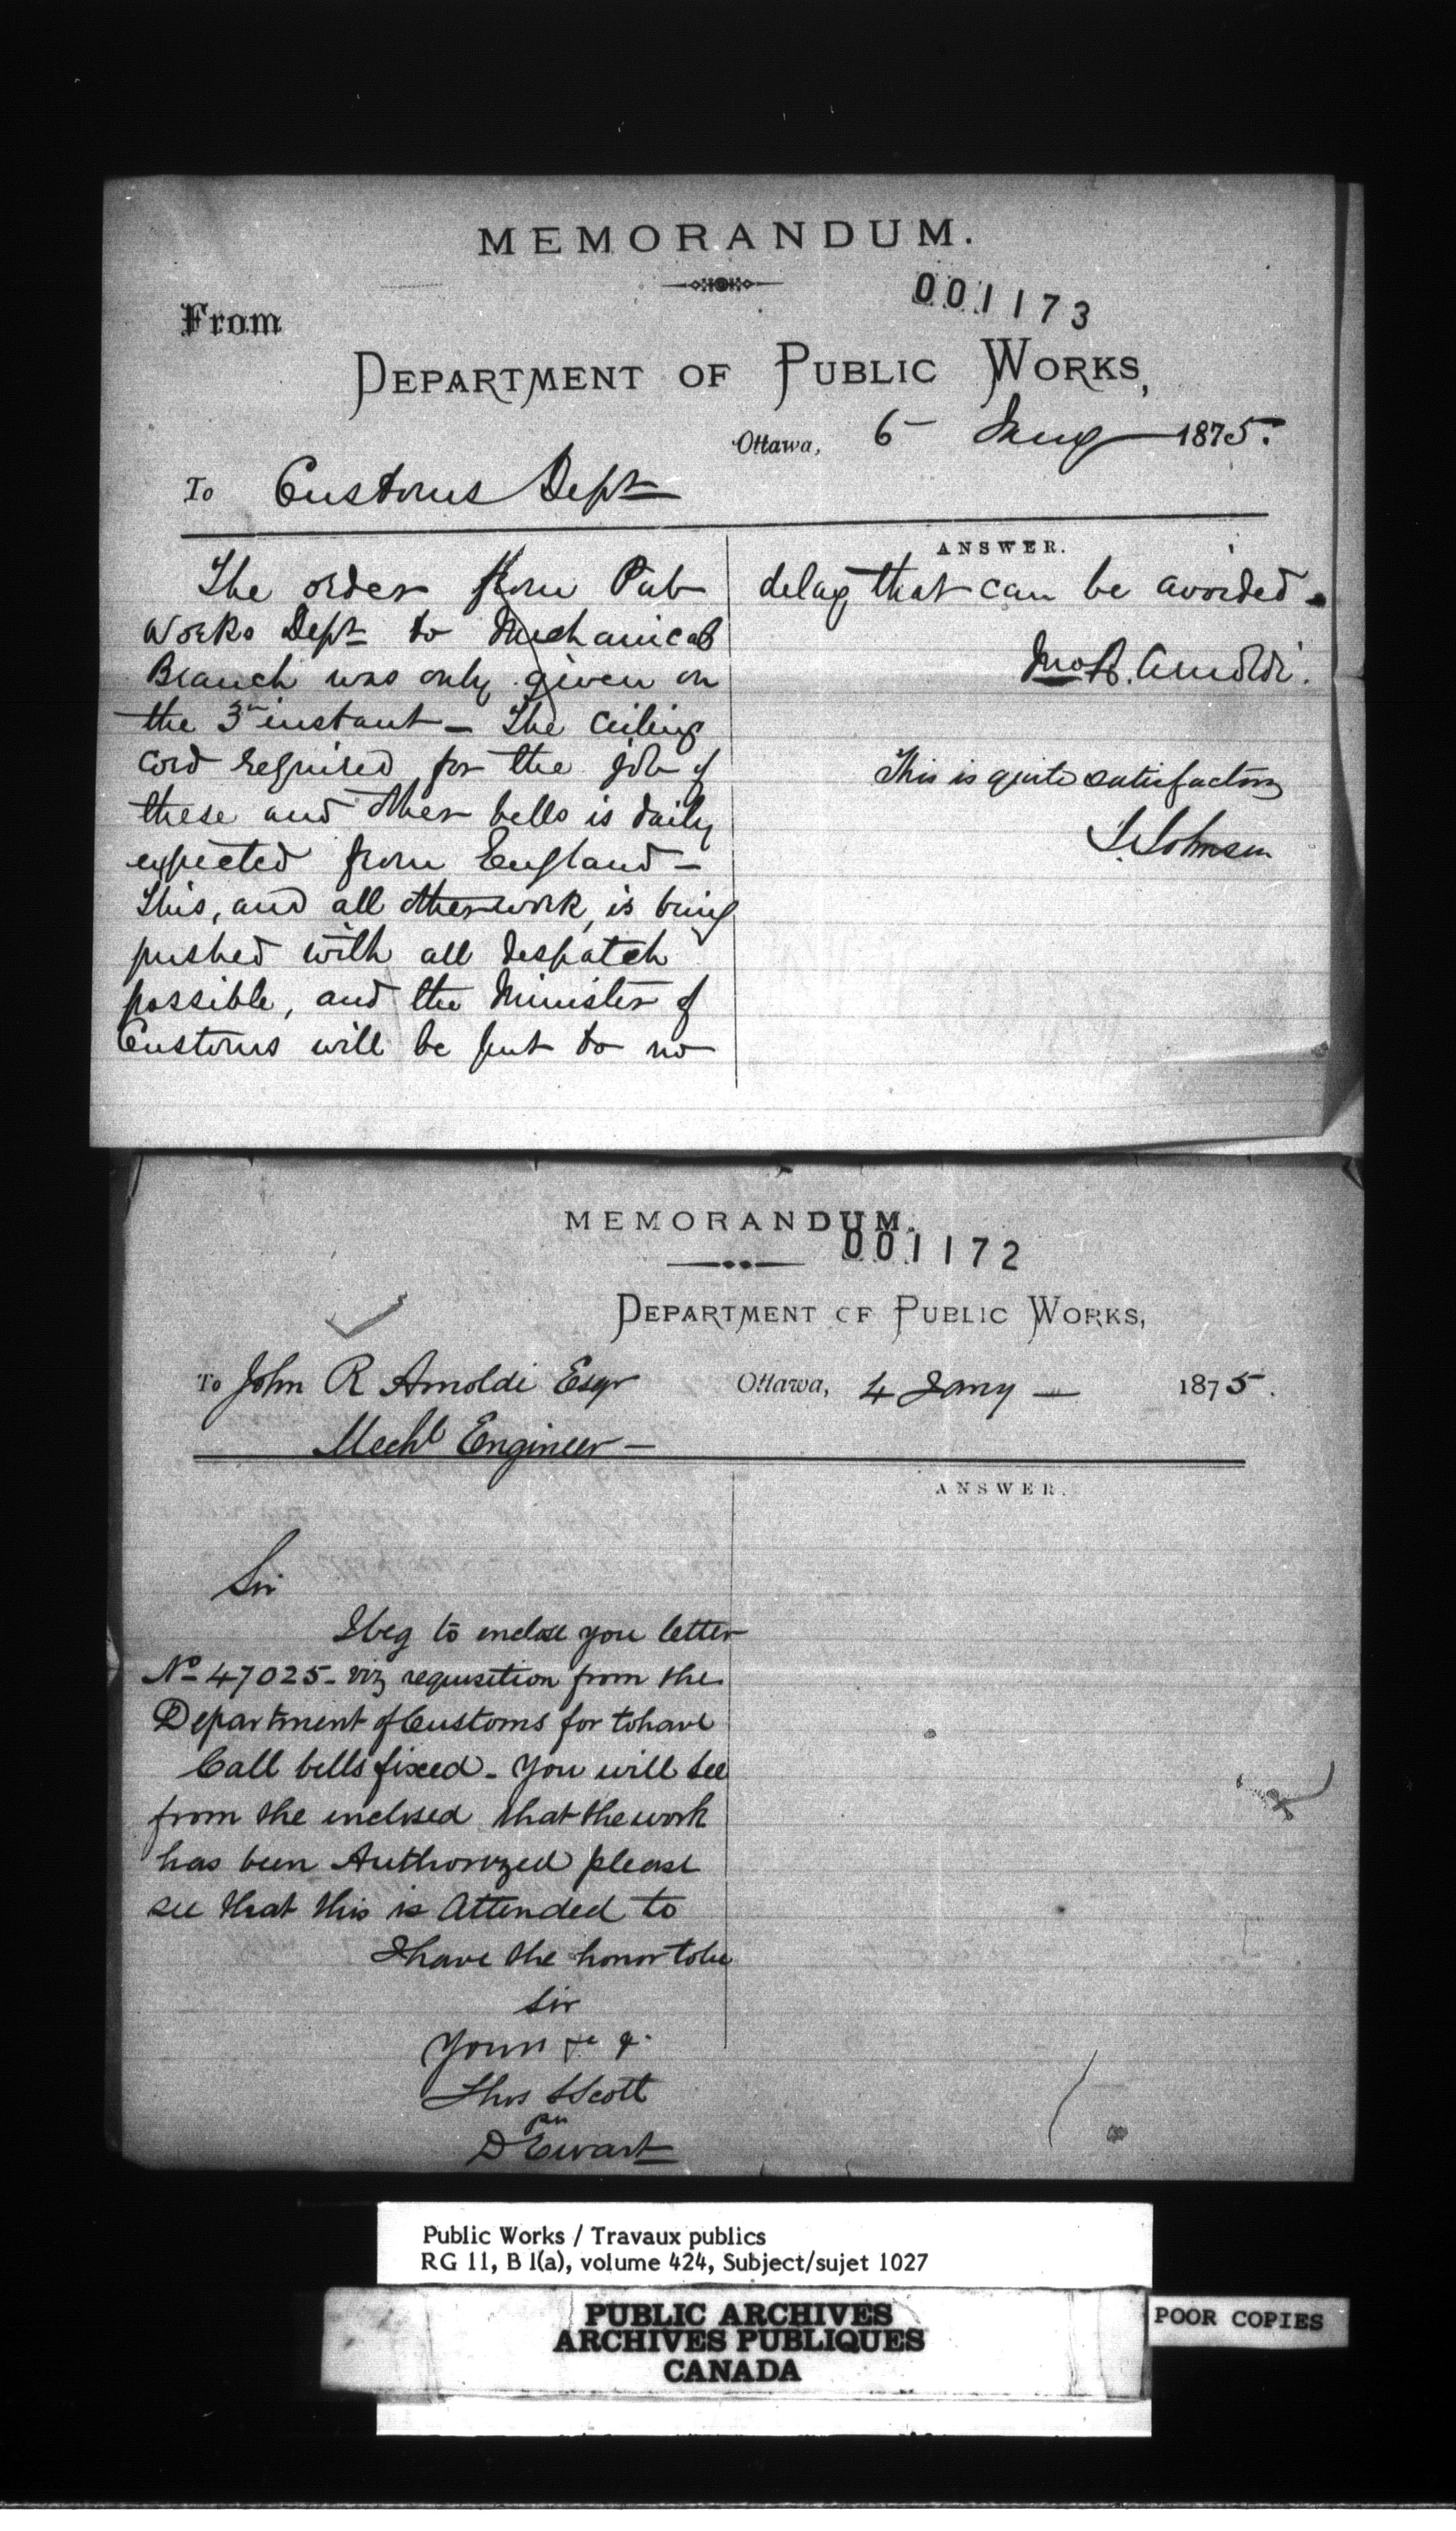 MEMORANDUM.
001173
From
DEPARTMENT OF PUBLIC WORKS,
Ottawa, 6 Jany 1875.
To Customs Dept
ANSWER.
The order from Pub
Works Dept to Mechanical
Branch was only given on
the 3rd instant - The ceiling
cord required for the job of
these and other bells is daily
expected from England -
This, and all other work, is being
pushed with all despatch
possible, and the Minister of
Customs will be put to no
delay that can be avoided.
Jno R. Arnoldi.
This is quite satisfactory
J. Johnson
MEMORANDUM.
001172
DEPARTMENT OF PUBLIC WORKS,
To John R Arnoldi Esqr Ottawa, 4 Jany - 1875.
Mechl Engineer -
ANSWER.
Sir
I beg to enclose you letter
No 47025 - viz requisition from the
Department of Customs for to have
Call bells fixed - You will see
from the inclosed that the work
has been Authorized please
see that this is Attended to
I have the honor to be
Sir
Yours &c &
Thos S Scott
per
D Ewart
Public Works / Travaux publics
RG 11, B 1(a), volume 424, Subject/sujet 1027
PUBLIC ARCHIVES
ARCHIVES PUBLIQUES
CANADA
POOR COPIES